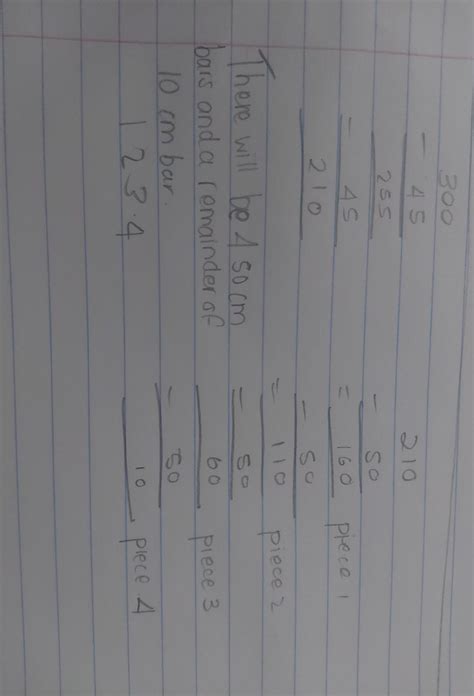 300
- 45
255
- 45
210
There will be 4 50 cm
bars and a remainder of
10 cm bar.
1 2 3 . 4
210
- 50
= 160 piece 1
- 50
= 110 piece 2
- 50
60 piece 3
- 50
10 piece 4